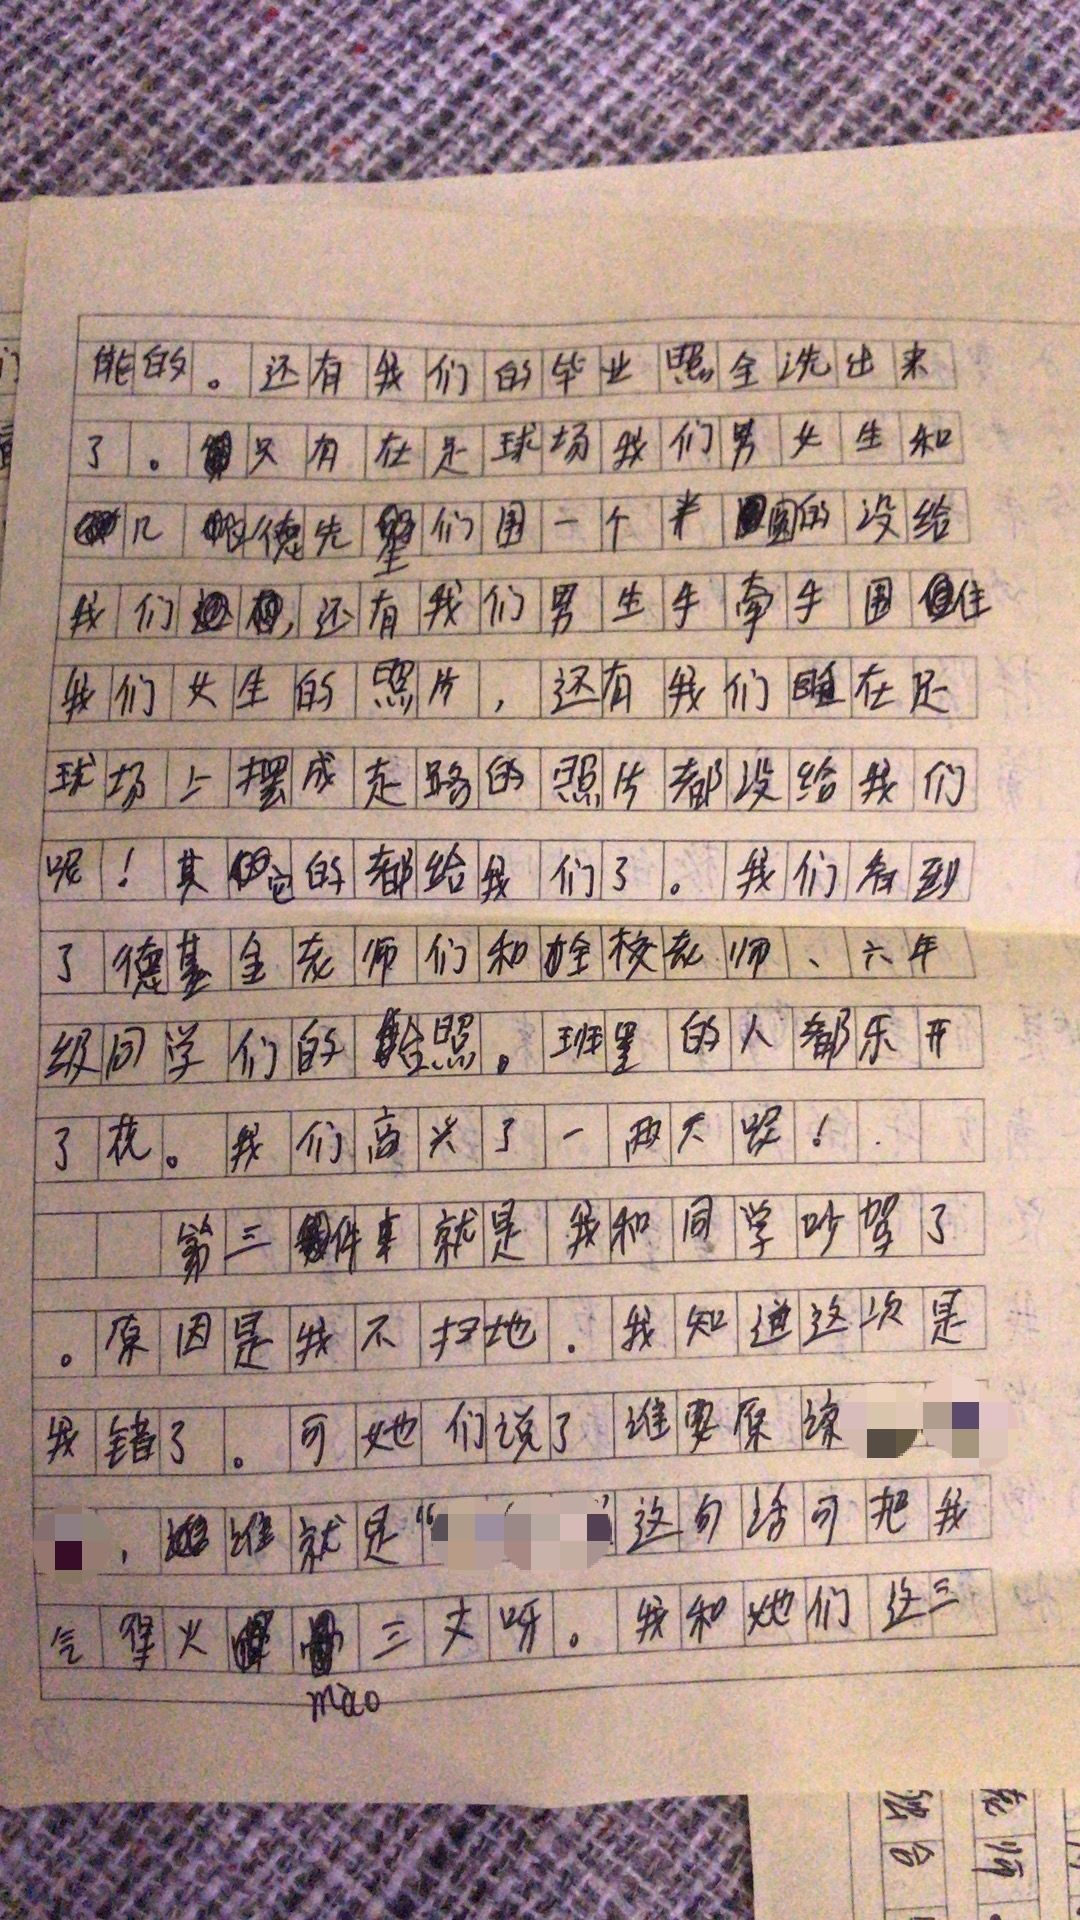 能的。还有我们的毕业照全洗出来
了。只有在足球场我们男女生和
几德先们围一个半圆的没给
我们,还有我们男生手牵手围住
我们女生的照片,还有我们在足
球场上摆成走路的照片都没给我们
呢!其它的都给我们了。我们看到
了德基金老师们和全校老师、六年
级同学们的合照。班里的人都乐开
了花。我们高兴了一两天呢!
第三件事就是我和同学吵驾了
。原因是我不扫地.我知道这次是
我错了。可她们说了谁要原谅
,谁就是“”这句话可把我
气得火三丈呀。我和她们这三
mao
老师
合